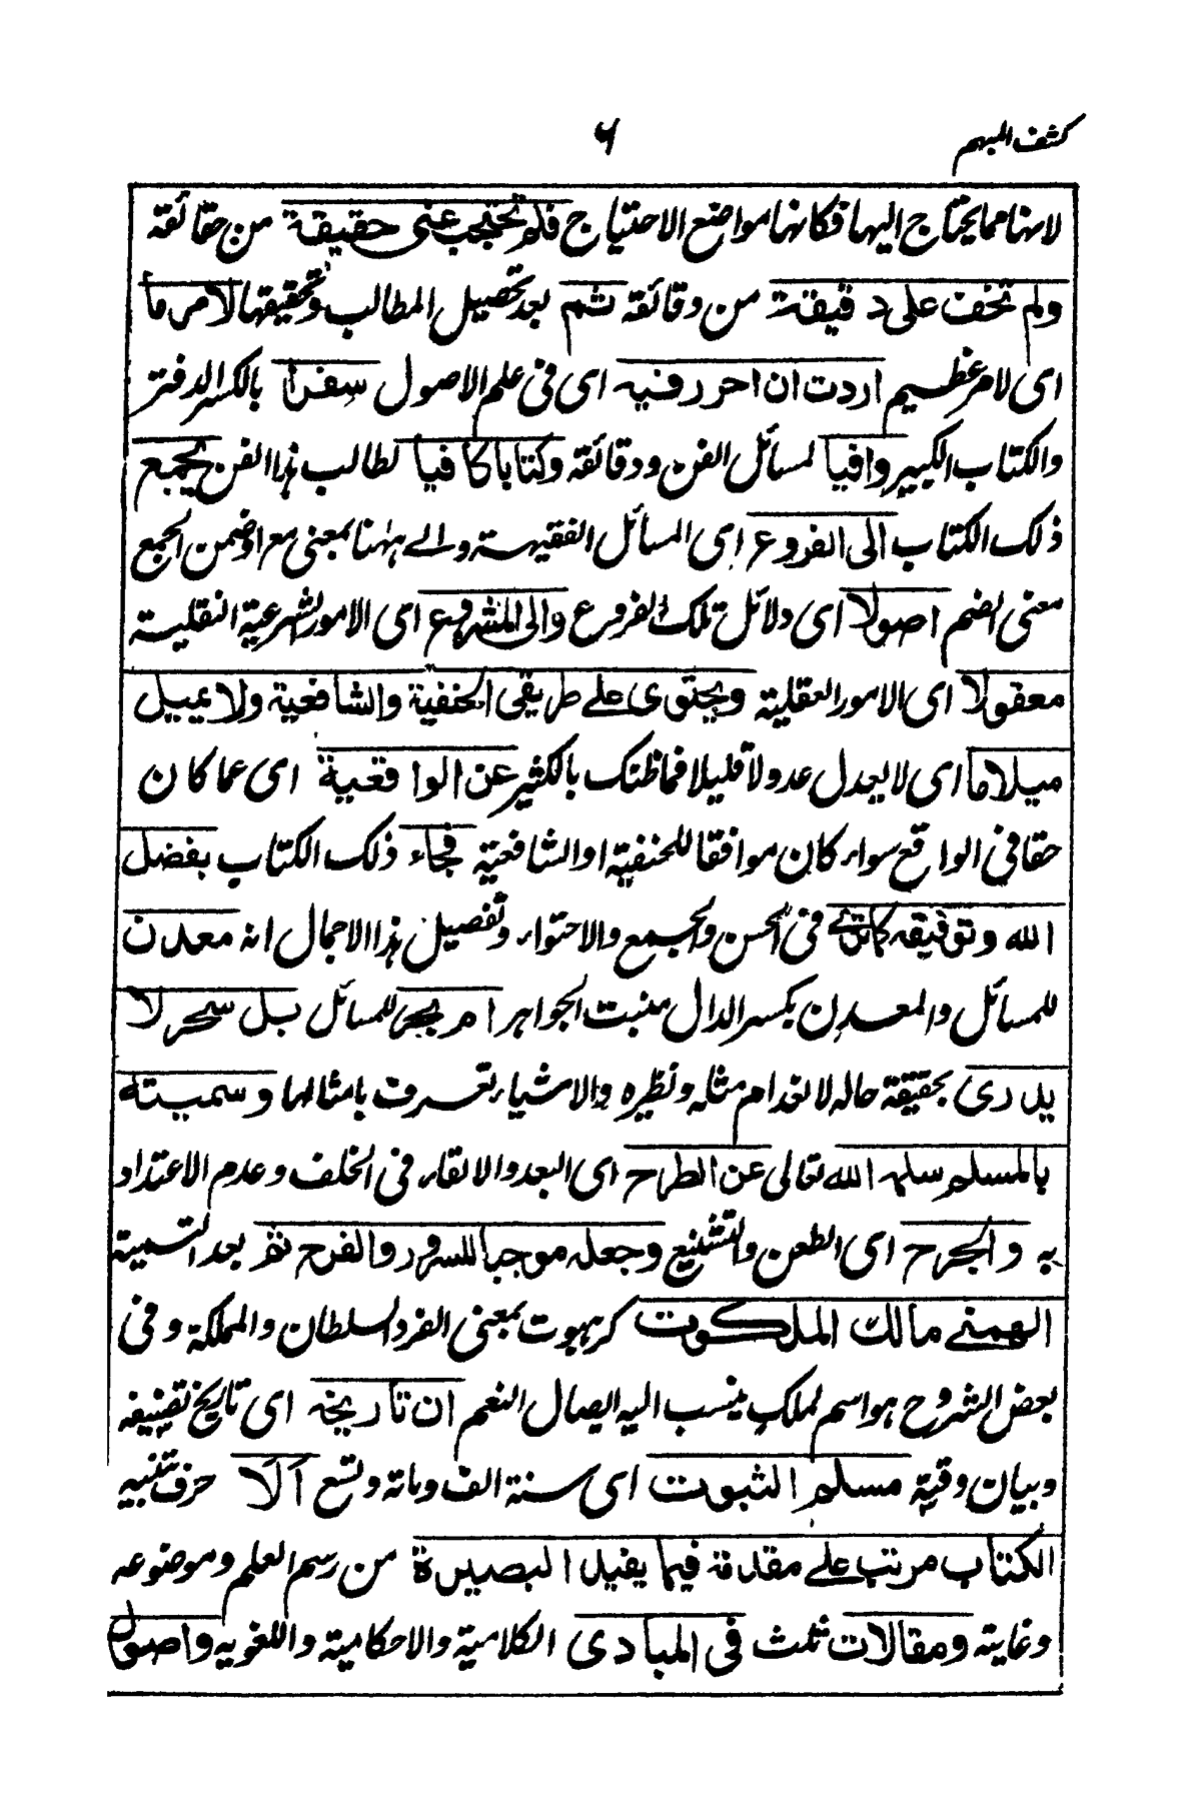 كشف المبهم
٦
لانها مما يحتاج اليها فكانها مواضع الاحتياج فلم تحتجب عنى حقيقة من حقائقه
ولم تخف على دقيقة من دقائقه ثم بعد تحصيل المطالب وتحقيقها لامر ما
اى لامر عظيم اردت ان احرر فيه اى فى علم الاصول سِفرا بالكسر الدفتر
والكتاب الكبير وافيا لمسائل الفن ودقائقه وكتابا كافيا لطالب هذا الفن يجمع
ذلك الكتاب الى الفروع اى المسائل الفقيهة والے ههنا بمعنى مع او ضمن الجمع
معنى الضم اصولا اى دلائل تلك الفروع والى المشروع اى الامور الشرعية النقلية
معقولا اى الامور العقلية ويحتوى على طريقى الحنفية والشافعية ولا يميل
ميلا ما اى لا يعدل عدولا قليلا فما ظنك بالكثير عن الواقعية اى عما كان
حقا فى الواقع سواء كان موافقا للحنفية او الشافعية فجاء ذلك الكتاب بفضل
الله وتوفيقه كما ترى فى الحسن والجمع والاحتواء وتفصيل هذا الاجمال انه معدن
للمسائل والمعدِن بكسر الدال منبت الجواهر ام بحر للمسائل بل سحر لا
يدرى بحقيقة حاله لانعدام مثله ونظيره والاشياء تعرف بامثالها وسميته
بالمسلم سلمه الله تعالى عن الطرح اى البعد والالقاء فى الخلف وعدم الاعتداد
به والجرح اى الطعن والتشنيع وجعله موجبا للسرور والفرح ثم بعد التسمية
الهمنے مالك الملكوت كرهبوت بمعنى الفرد السلطان والمملكة وفى
بعض الشروح هو اسم لملكٍ ينسب اليه ايصال النعم ان تاريخه اى تاريخ تصنيفه
وبيان وقته مسلم الثبوت اى سنة الف ومائة وتسع اَلَا حرف تنبيه
الكتاب مرتب على مقدمة فيما يفيد البصيرة من رسم العلم وموضوعه
وغايته ومقالات ثلث فى المبادى الكلامية والاحكامية واللغويه واصول